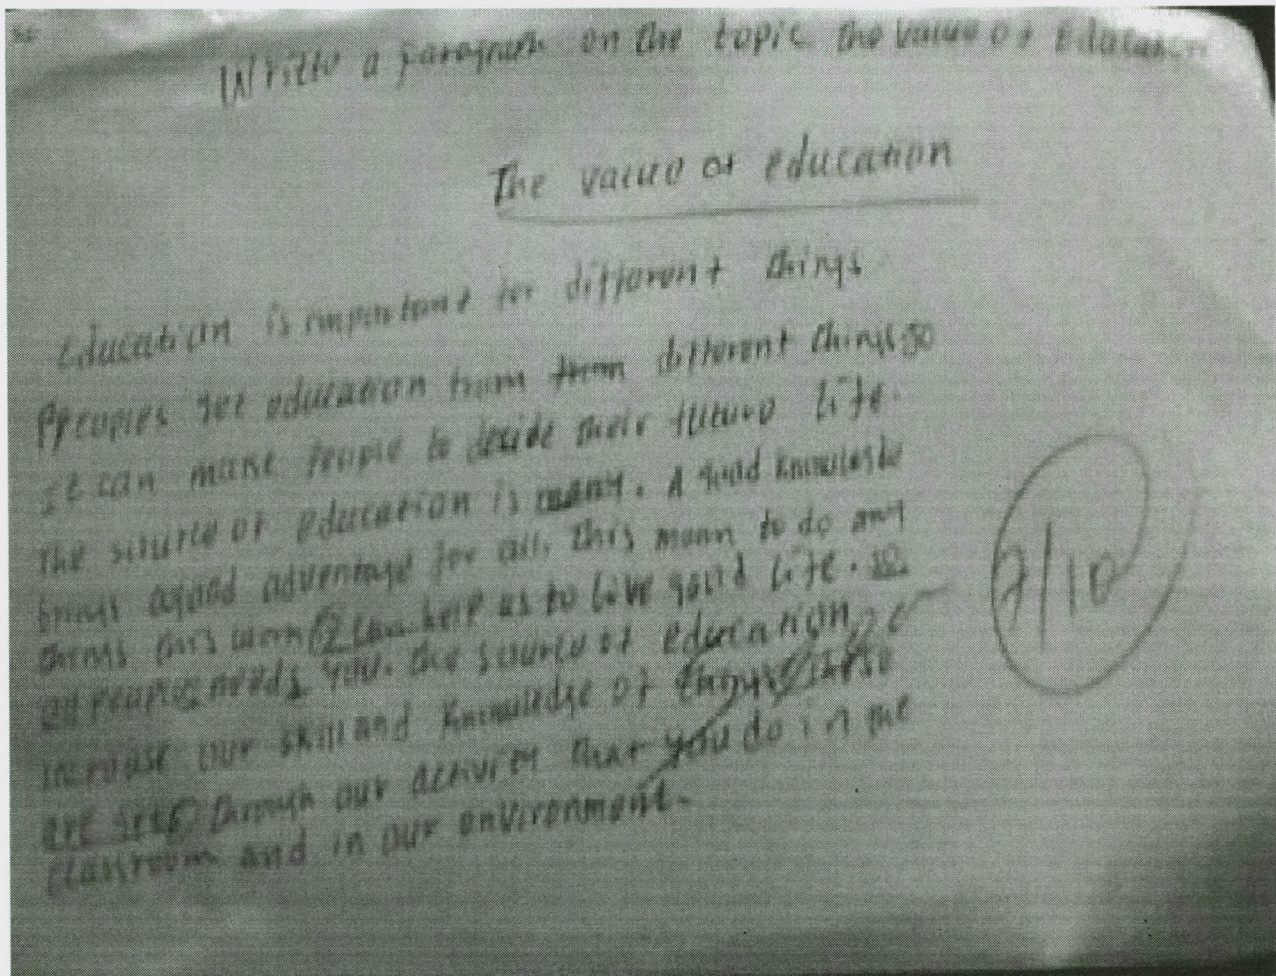 Write a paragraph on the topic the value of Education
The value of education
Education is important for different things
Peoples get education from from different things so
it can make people to decide their future life.
The source of education is many. A good knowledge
brings a good advantage for all. This mean to do any
things this work can help us to live good life. so
all peoples needs you. the source of education
increase our skill and knowledge of these
are get through our activity that you do in the
classroom and in our environment.
7/10